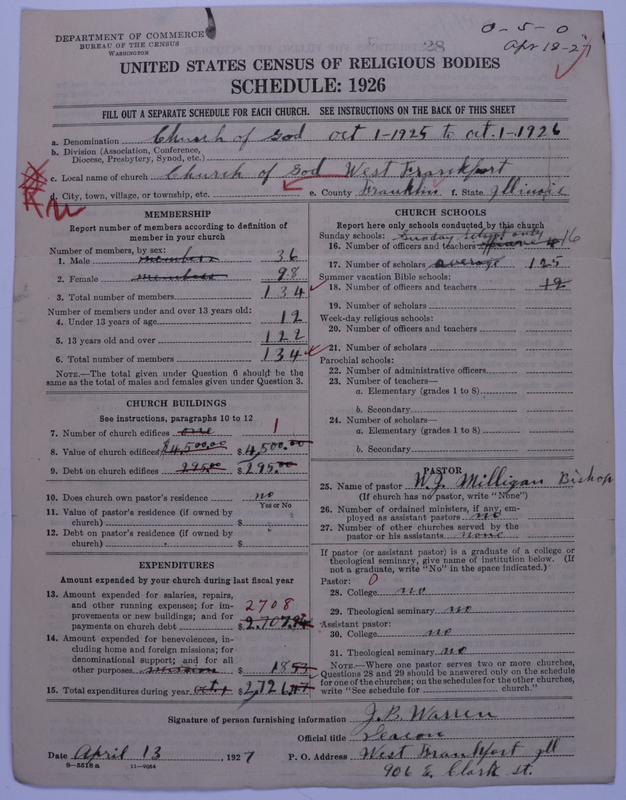 DEPARTMENT OF COMMERCE
BUREAU OF THE CENSUS
WASHINGTON
28
0-5-0
Apr 18-27
UNITED STATES CENSUS OF RELIGIOUS BODIES
SCHEDULE: 1926
FILL OUT A SEPARATE SCHEDULE FOR EACH CHURCH. SEE INSTRUCTIONS ON THE BACK OF THIS SHEET
a. Denomination Church of God oct 1-1925 to oct. 1-1926
b. Division (Association, Conference, Diocese, Presbytery, Synod, etc.)
c. Local name of church Church of God West Frankfort
d. City, town, village, or township, etc. e. County Franklin f. State Illinois
MEMBERSHIP
Report number of members according to definition of member in your church
Number of members, by sex:
1. Male members 36
2. Female members 98
3. Total number of members 134
Number of members under and over 13 years old:
4. Under 13 years of age 12
5. 13 years old and over 122
6. Total number of members 134
NOTE.—The total given under Question 6 should be the same as the total of males and females given under Question 3.
CHURCH BUILDINGS
See instructions, paragraphs 10 to 12
7. Number of church edifices one 1
8. Value of church edifices $4,500.00 $4,500.00
9. Debt on church edifices 295.00 $295.00
10. Does church own pastor's residence no
Yes or No
11. Value of pastor's residence (if owned by church) $
12. Debt on pastor's residence (if owned by church) $
EXPENDITURES
Amount expended by your church during last fiscal year
13. Amount expended for salaries, repairs, and other running expenses; for improvements or new buildings; and for payments on church debt 2708 $
14. Amount expended for benevolences, including home and foreign missions; for denominational support; and for all other purposes mission $
15. Total expenditures during year $
CHURCH SCHOOLS
Report here only schools conducted by this church
Sunday schools: Sunday school only
16. Number of officers and teachers 16
17. Number of scholars average 125
Summer vacation Bible schools:
18. Number of officers and teachers 12
19. Number of scholars
Week-day religious schools:
20. Number of officers and teachers
21. Number of scholars
Parochial schools:
22. Number of administrative officers
23. Number of teachers—
a. Elementary (grades 1 to 8)
b. Secondary
24. Number of scholars—
a. Elementary (grades 1 to 8)
b. Secondary
PASTOR
25. Name of pastor W. J. Milligan Bishop
(If church has no pastor, write "None")
26. Number of ordained ministers, if any, employed as assistant pastors no
27. Number of other churches served by the pastor or his assistants none
If pastor (or assistant pastor) is a graduate of a college or theological seminary, give name of institution below. (If not a graduate, write "No" in the space indicated.)
Pastor: 0
28. College no
29. Theological seminary no
Assistant pastor:
30. College no
31. Theological seminary no
NOTE.—Where one pastor serves two or more churches, Questions 28 and 29 should be answered only on the schedule for one of the churches; on the schedules for the other churches, write "See schedule for church."
Signature of person furnishing information J. B. Warren
Official title Deacon
Date April 13 1927 P. O. Address West Frankfort Ill
906 E. Clark St.
8-5518a 11-9064